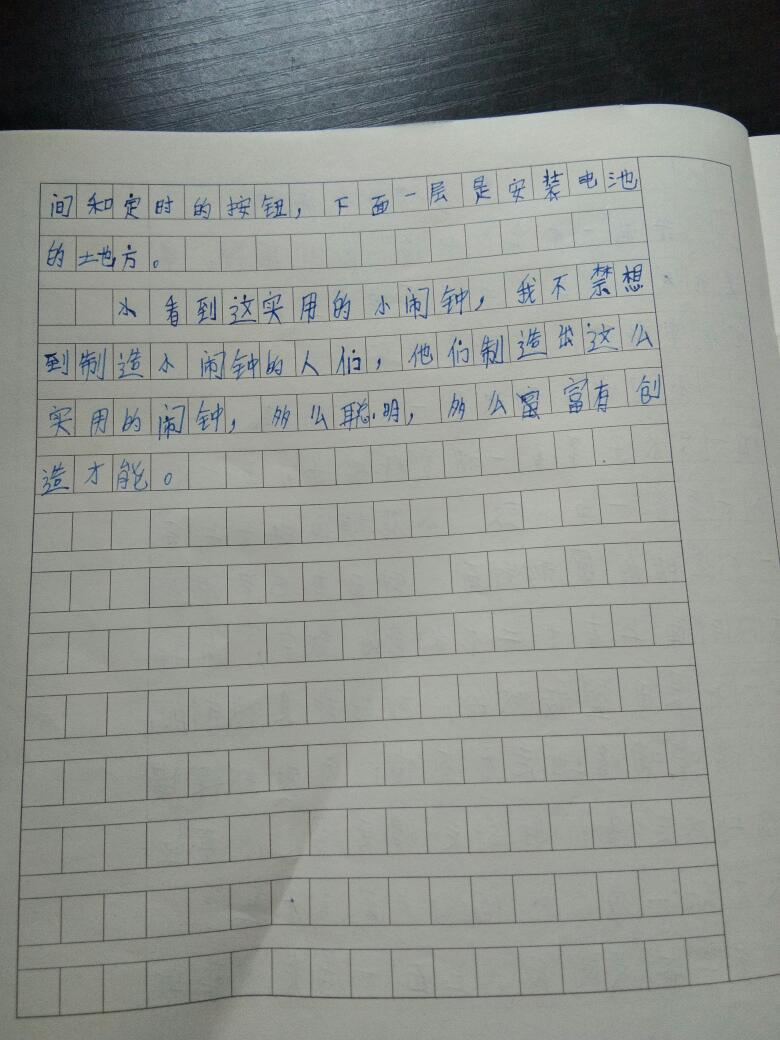 间和定时的按钮，下面一层是安装电池
的地方。
小看到这实用的小闹钟，我不禁想
到制造小闹钟的人们，他们制造出这么
实用的闹钟，多么聪明，多么富富有创
造才能。